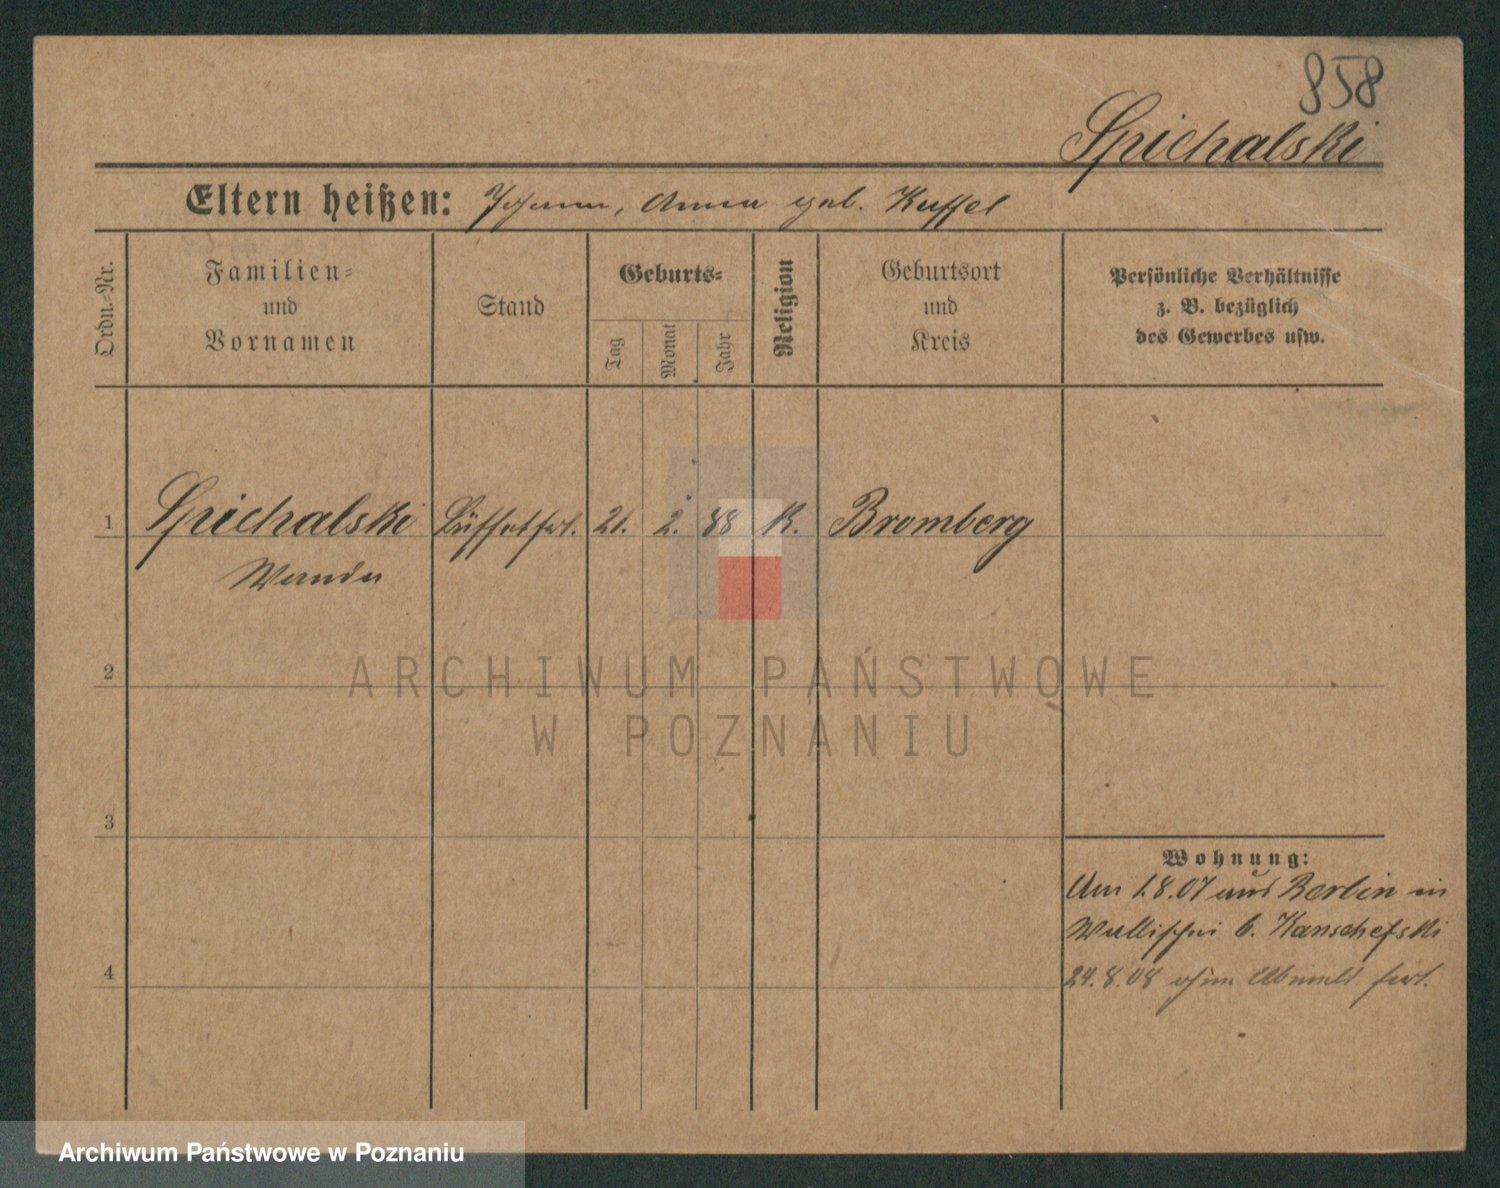 858
Spichalski
Eltern heißen: Johann, Anna geb. Kuffel
Ordn.-Nr.
Familien-
und
Vornamen
Stand
Geburts-
Tag
Monat
Jahr
Religion
Geburtsort
und
Kreis
Persönliche Verhältnisse
z. B. bezüglich
des Gewerbes usw.
1 Spichalski Büffetfrl. 21. 2. 88 K. Bromberg
Wanda
2
3
4
Wohnung:
Am 1.8.07 aus Berlin in
Wallischei b. Kanschefski
24.8.08 ohne Abmeld fort.
ARCHIWUM PAŃSTWOWE
W POZNANIU
Archiwum Państwowe w Poznaniu